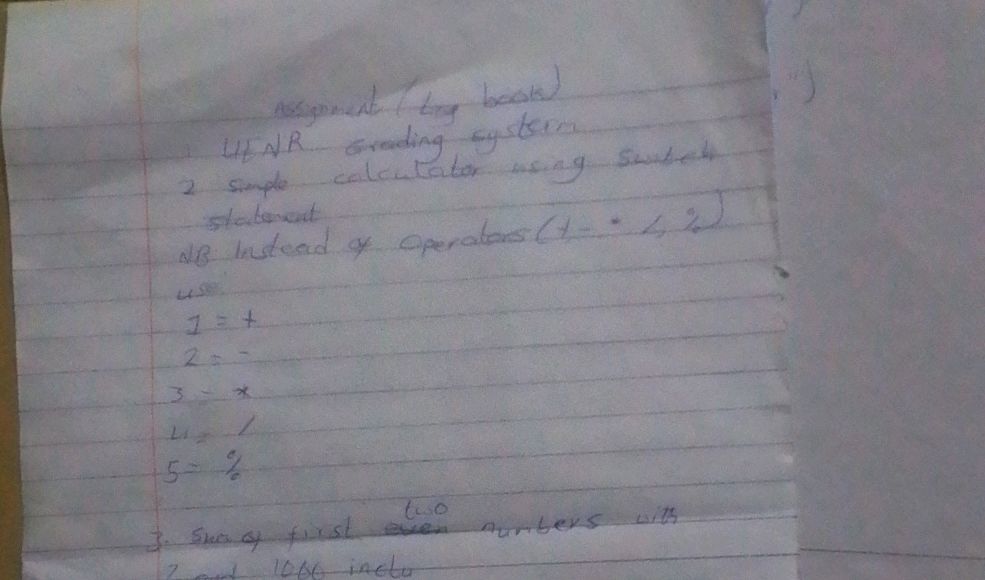 Assignment (Log book)
UENR Grading system
2 simple calculator using Switch
statement
NB Instead of operators (+ - * /, %)
use
1 = +
2 = -
3 = *
4 = /
5 = %
two
3. Sum of first even numbers with
2 and 1000 inclu